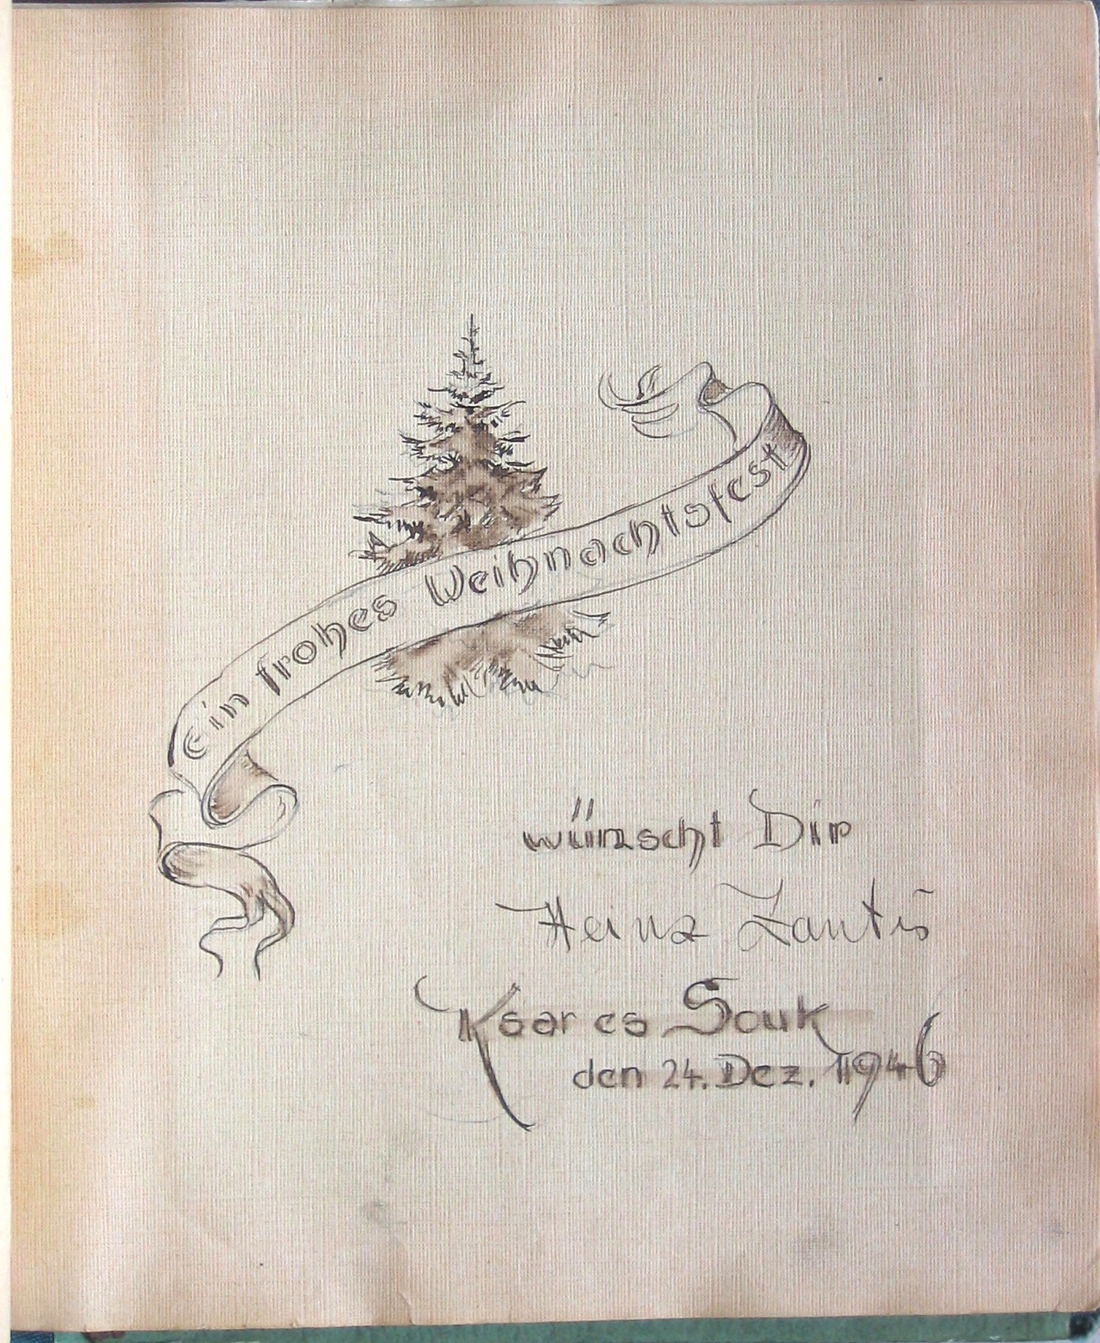 Ein frohes Weihnachtsfest
wünscht Dir
Heinz Lantis
Ksar es Souk
den 24. Dez. 1946